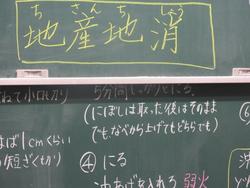 ち さん ち しょう
地産地消
ねて小口切り
5分間しっかりとにる。
(にぼしは取った後はそのまま
でも、なべから上げてもどちらでも)
まば1cmくらい
の短ざく切り
④ にる
を入れる 弱火
⑥